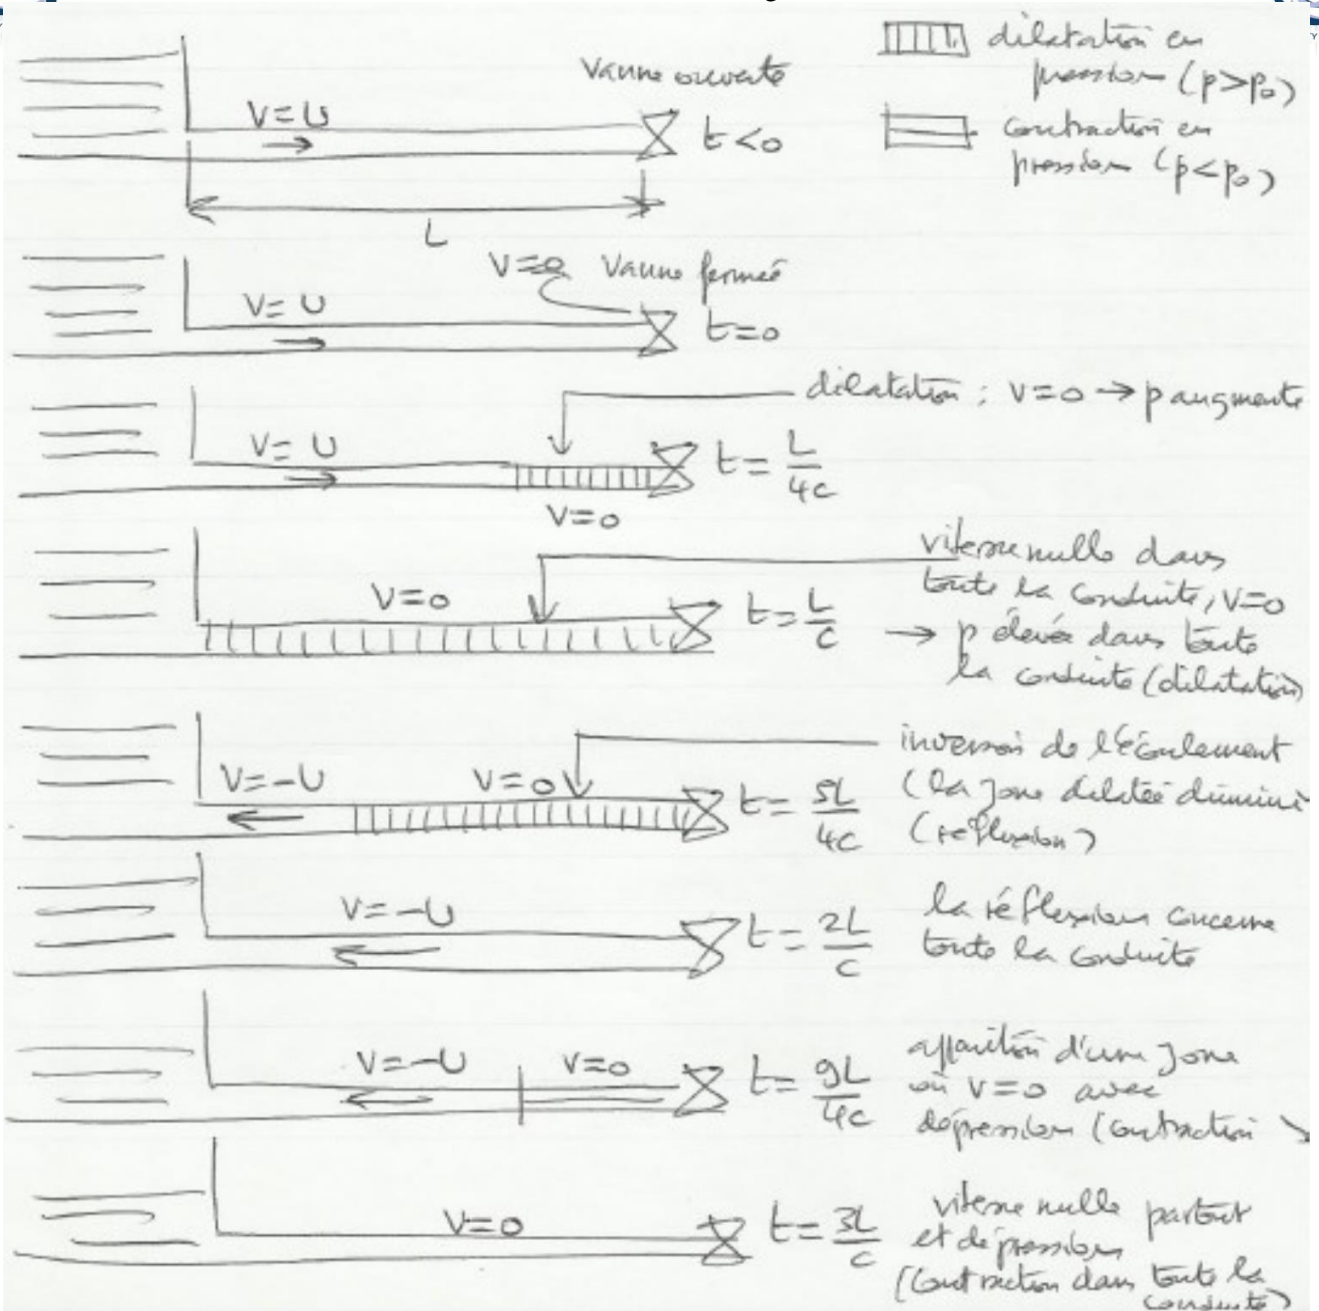 dilatation en
pression (p>p₀)
contraction en
pression (p<p₀)
Vanne ouverte
V=U
t<0
L
V=0 Vanne fermée
V=U
t=0
dilatation : V=0 → p augmente
V=U
t=L/4c
V=0
vitesse nulle dans
toute la conduite, V=0
→ p élevée dans toute
la conduite (dilatation)
V=0
t=L/c
inversion de l'écoulement
(la zone dilatée diminue
(réflexion)
V=-U V=0
t=5L/4c
la réflexion concerne
toute la conduite
V=-U
t=2L/c
apparition d'une zone
où V=0 avec
dépression (contraction
V=-U V=0
t=9L/4c
vitesse nulle partout
et dépression
(contraction dans toute la
conduite)
V=0
t=3L/c